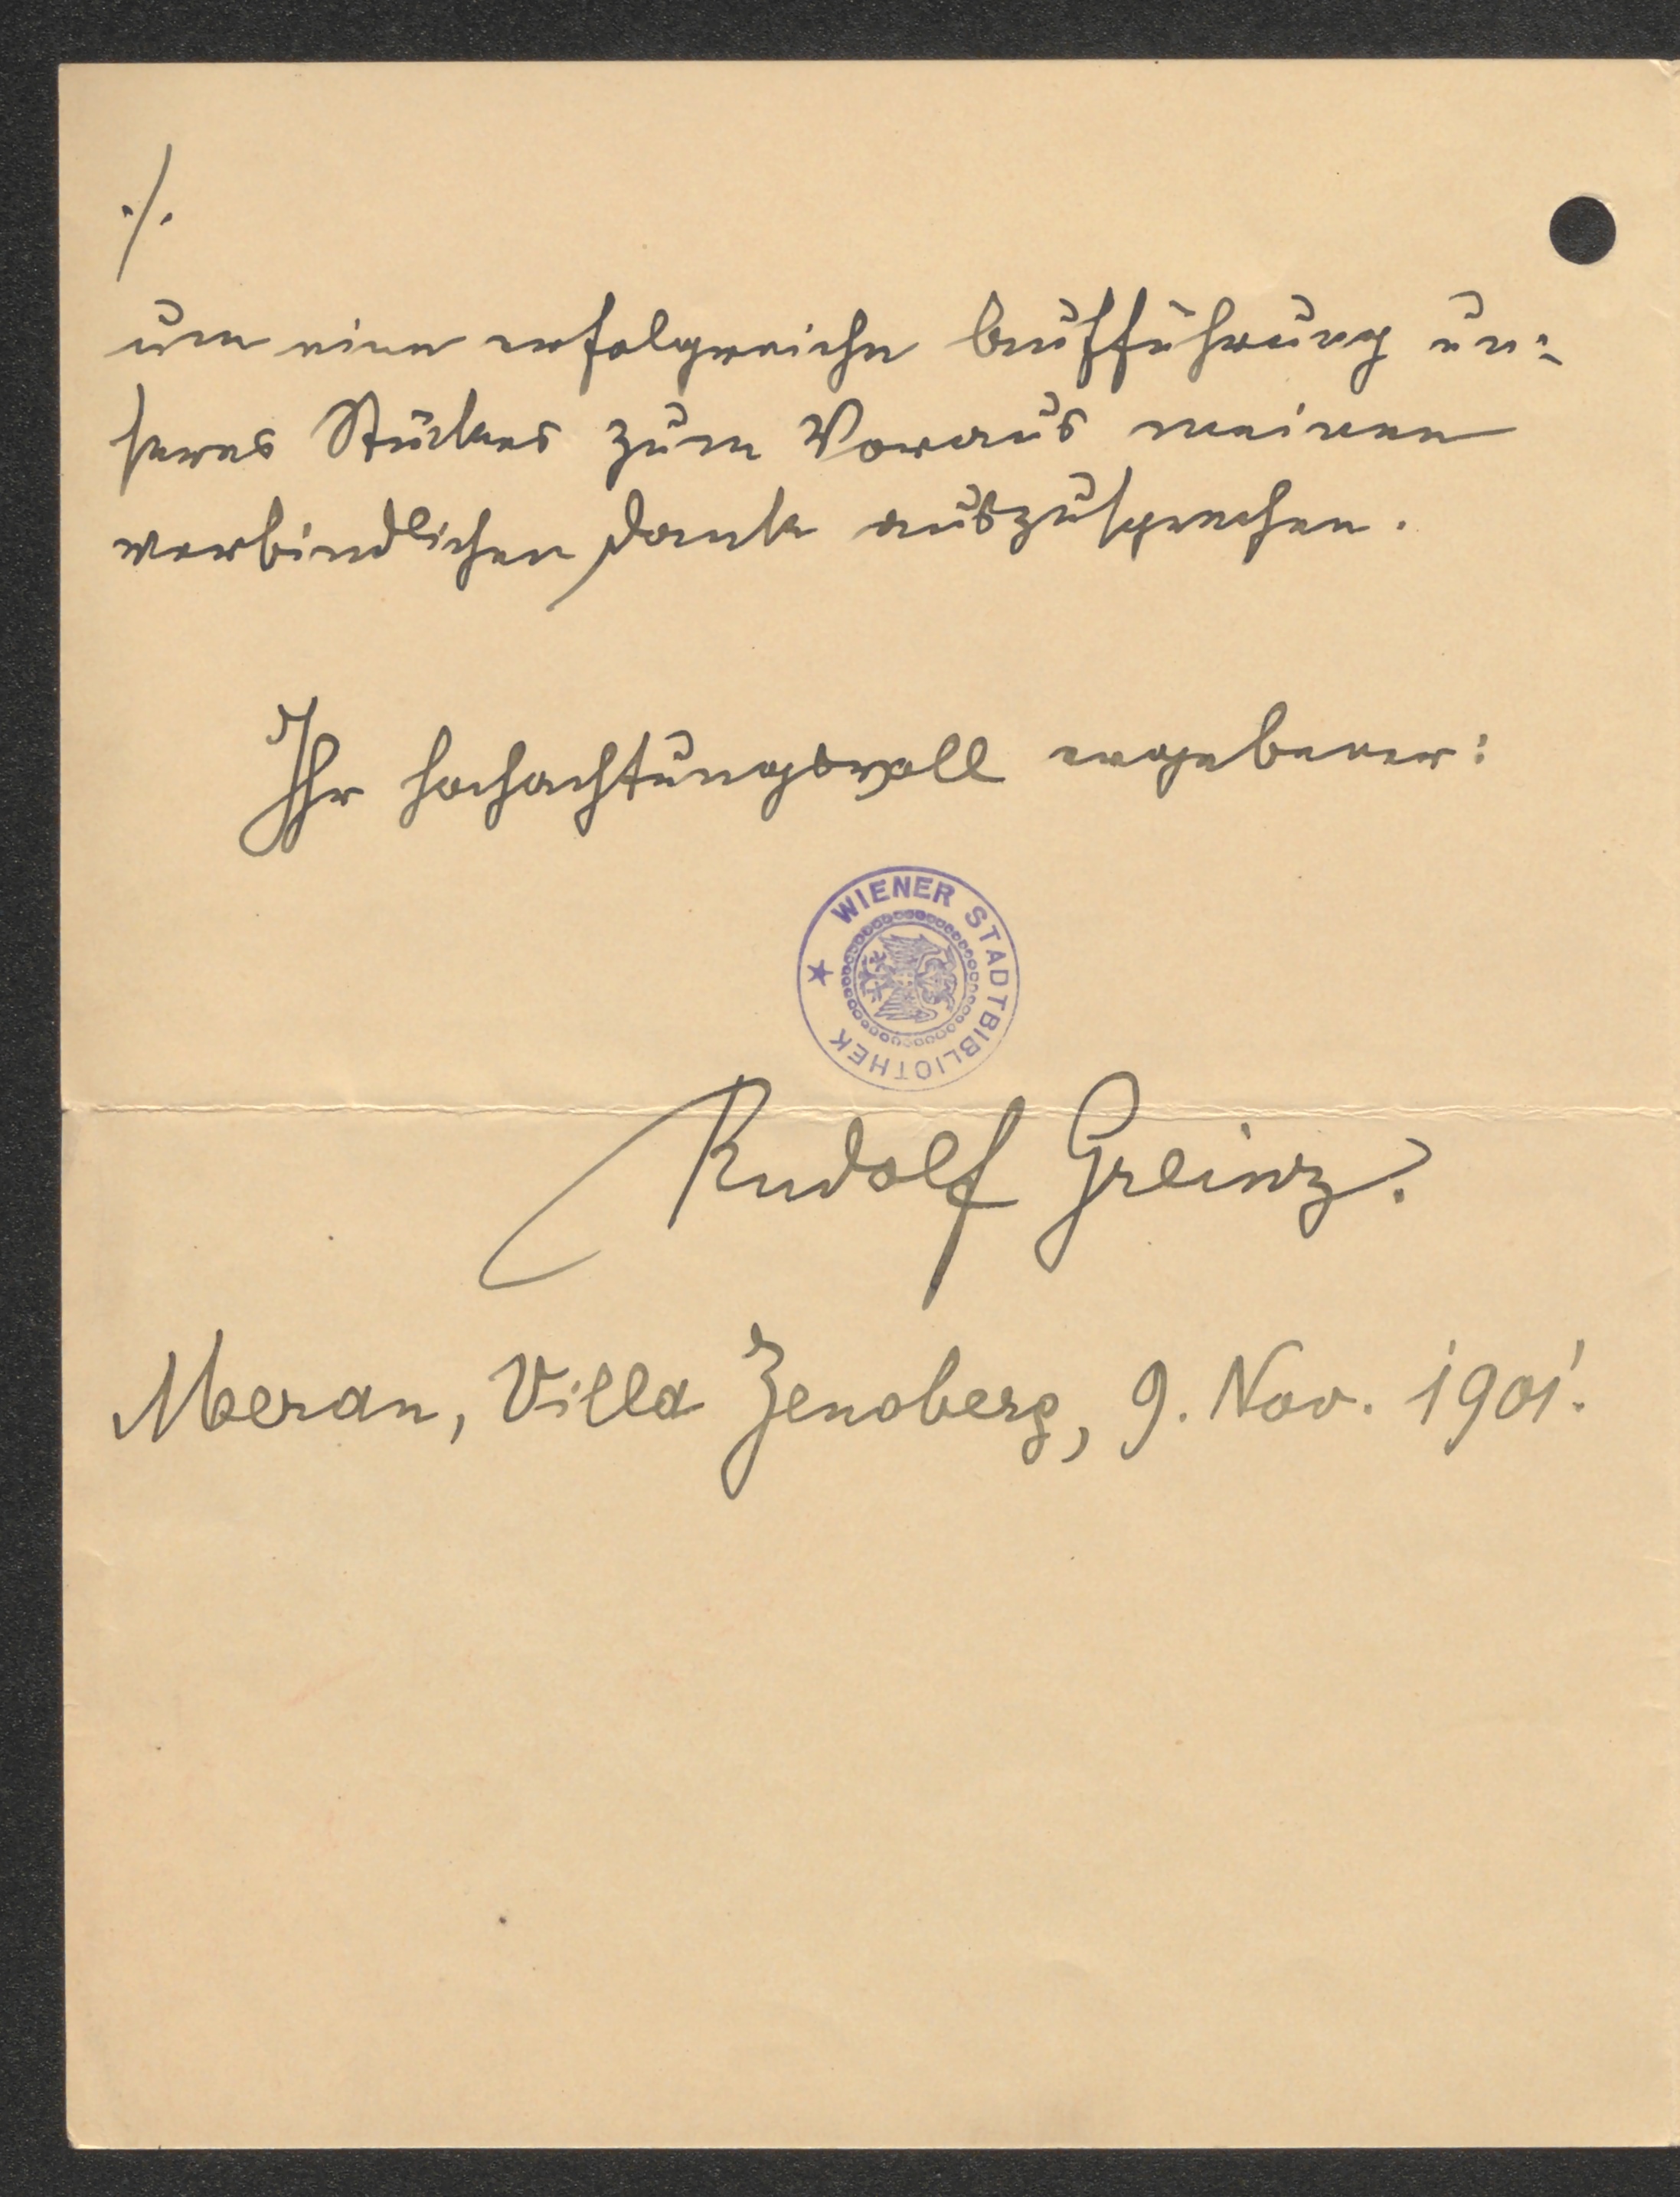 ./.
um eine erfolgreiche Aufführung un-
seres Stückes zum Voraus meinen
verbindlichen Dank auszusprechen.
Ihr hochachtungsvoll ergebener:
WIENER STADTBIBLIOTHEK
Rudolf Greinz.
Meran, Villa Zenoberg, 9. Nov. 1901.